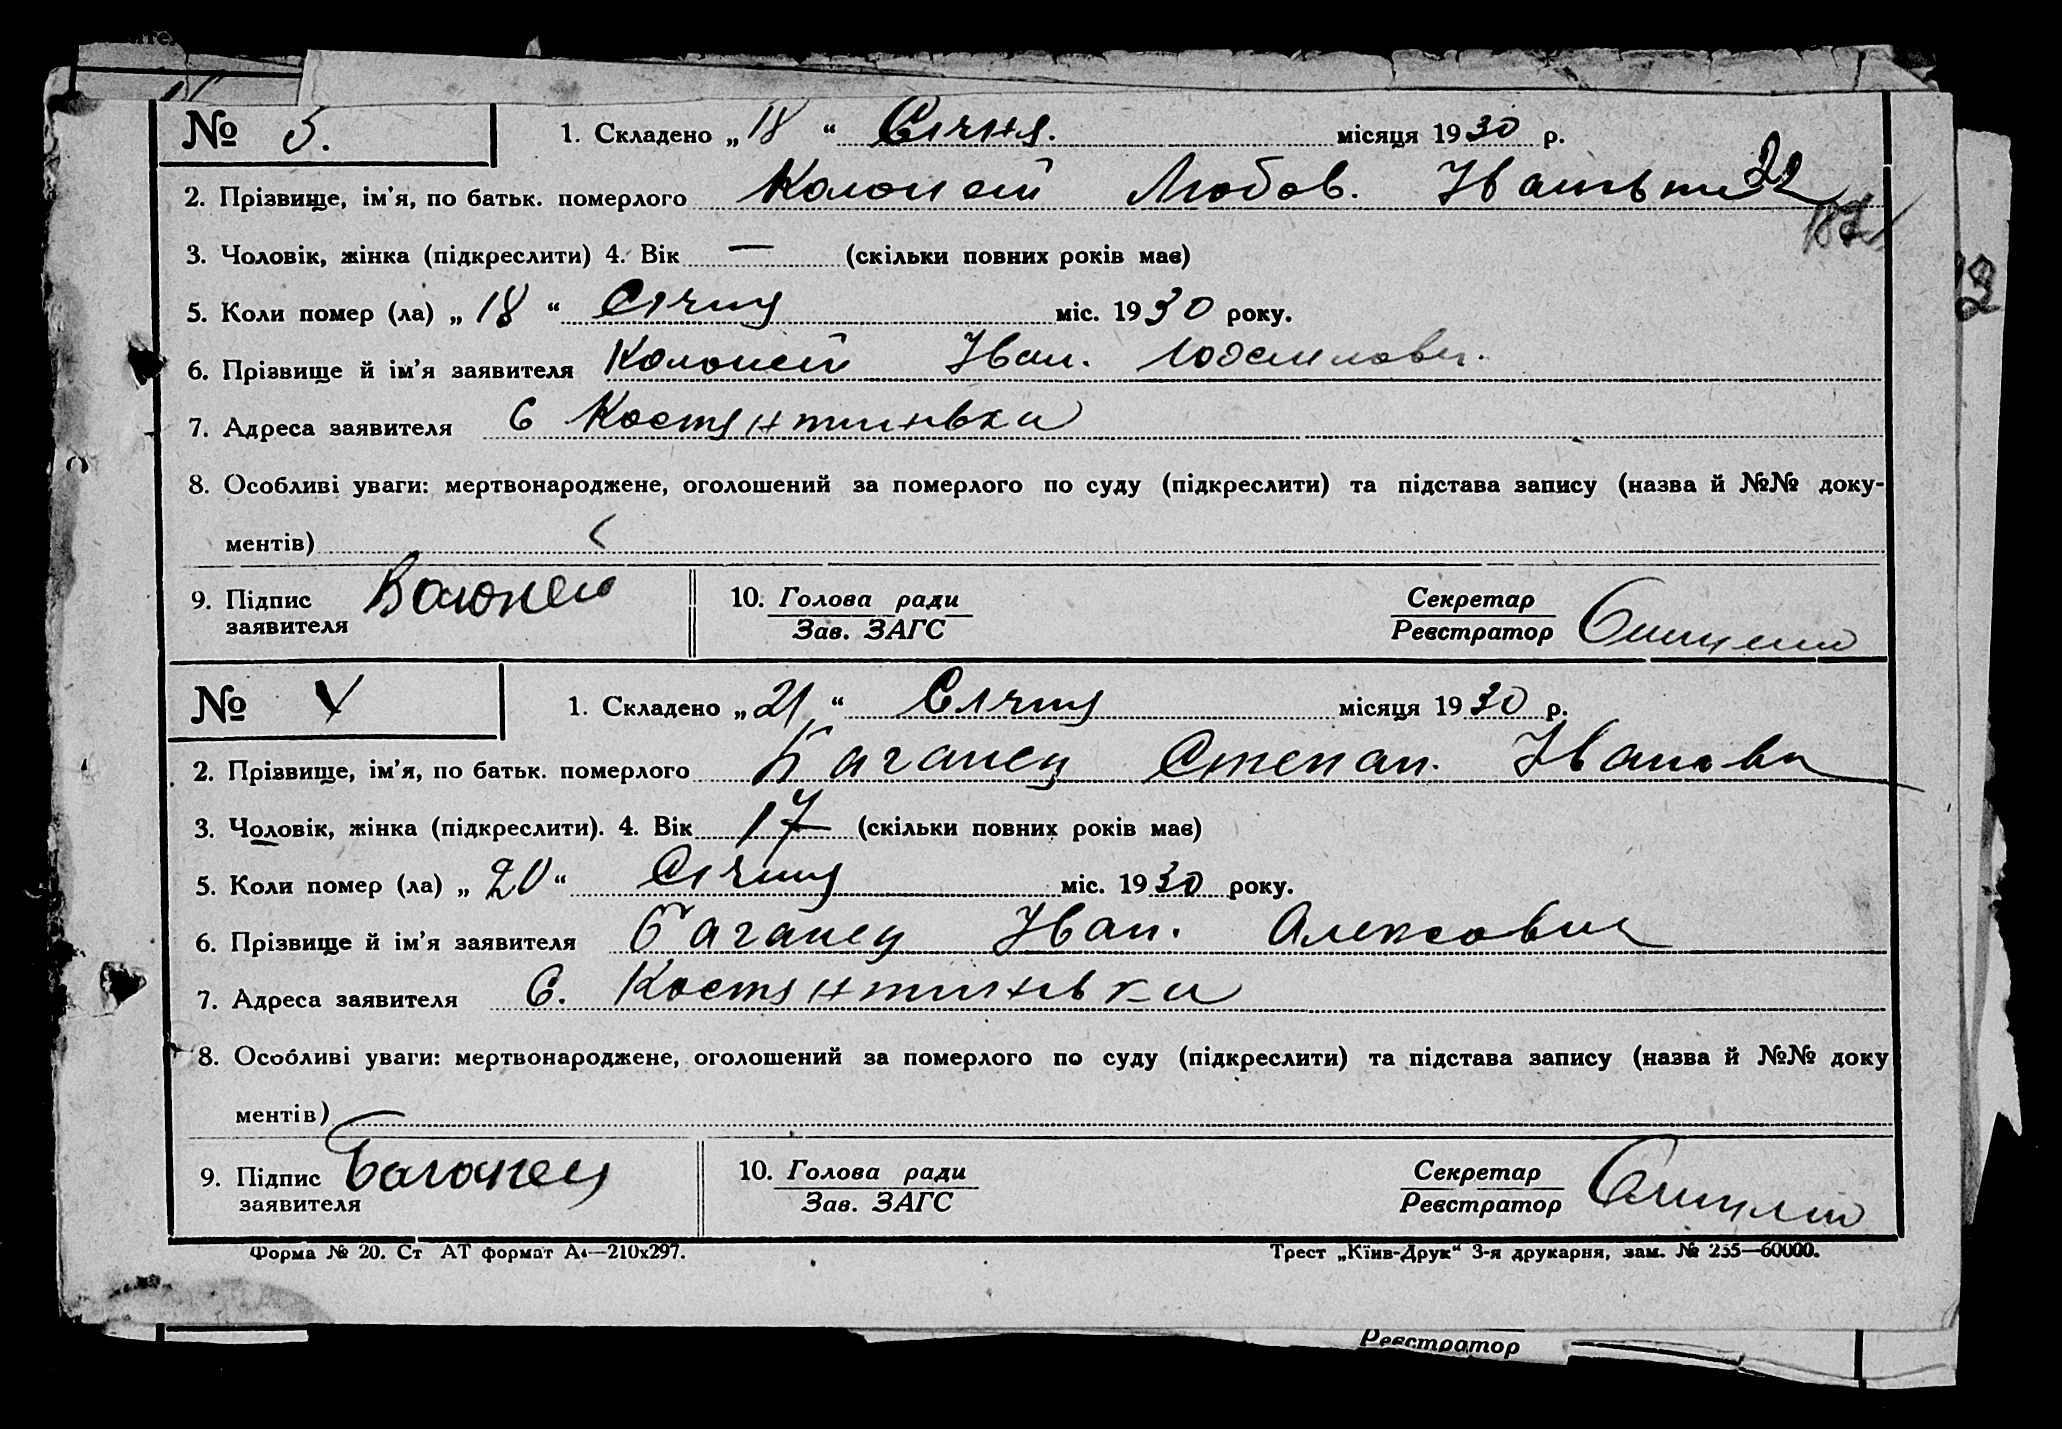 № 5.
1. Складено „ 18 “ Січня. місяця 1930 р.
22
2. Прізвище, ім'я, по батьк. померлого Колоней Любов.
3. Чоловік, жінка (підкреслити) 4. Вік — (скільки повних років має)
5. Коли помер (ла) „ 18 “ Січня міс. 1930 року.
6. Прізвище й ім'я заявителя Колоней Иван.
7. Адреса заявителя С Костянтинівка
8. Особливі уваги: мертвонароджене, оголошений за померлого по суду (підкреслити) та підстава запису (назва й №№ доку-
ментів)
9. Підпис
заявителя
10. Голова ради
Зав. ЗАГС
Секретар
Реєстратор
№
1. Складено „ 21 “ Січня місяця 1930 р.
2. Прізвище, ім'я, по батьк. померлого Баганец Степан. Иванови
3. Чоловік, жінка (підкреслити). 4. Вік 17 (скільки повних років має)
5. Коли помер (ла) „ 20 “ Січня міс. 1930 року.
6. Прізвище й ім'я заявителя Баганец Иван. Алексович
7. Адреса заявителя С. Костянтинівка
8. Особливі уваги: мертвонароджене, оголошений за померлого по суду (підкреслити) та підстава запису (назва й №№ доку
ментів)
9. Підпис Баганец
заявителя
10. Голова ради
Зав. ЗАГС
Секретар
Реєстратор
Форма № 20. Ст АТ формат А4—210x297.
Трест „Київ-Друк“ 3-я друкарня, зам. № 255—60000.
Реєстратор